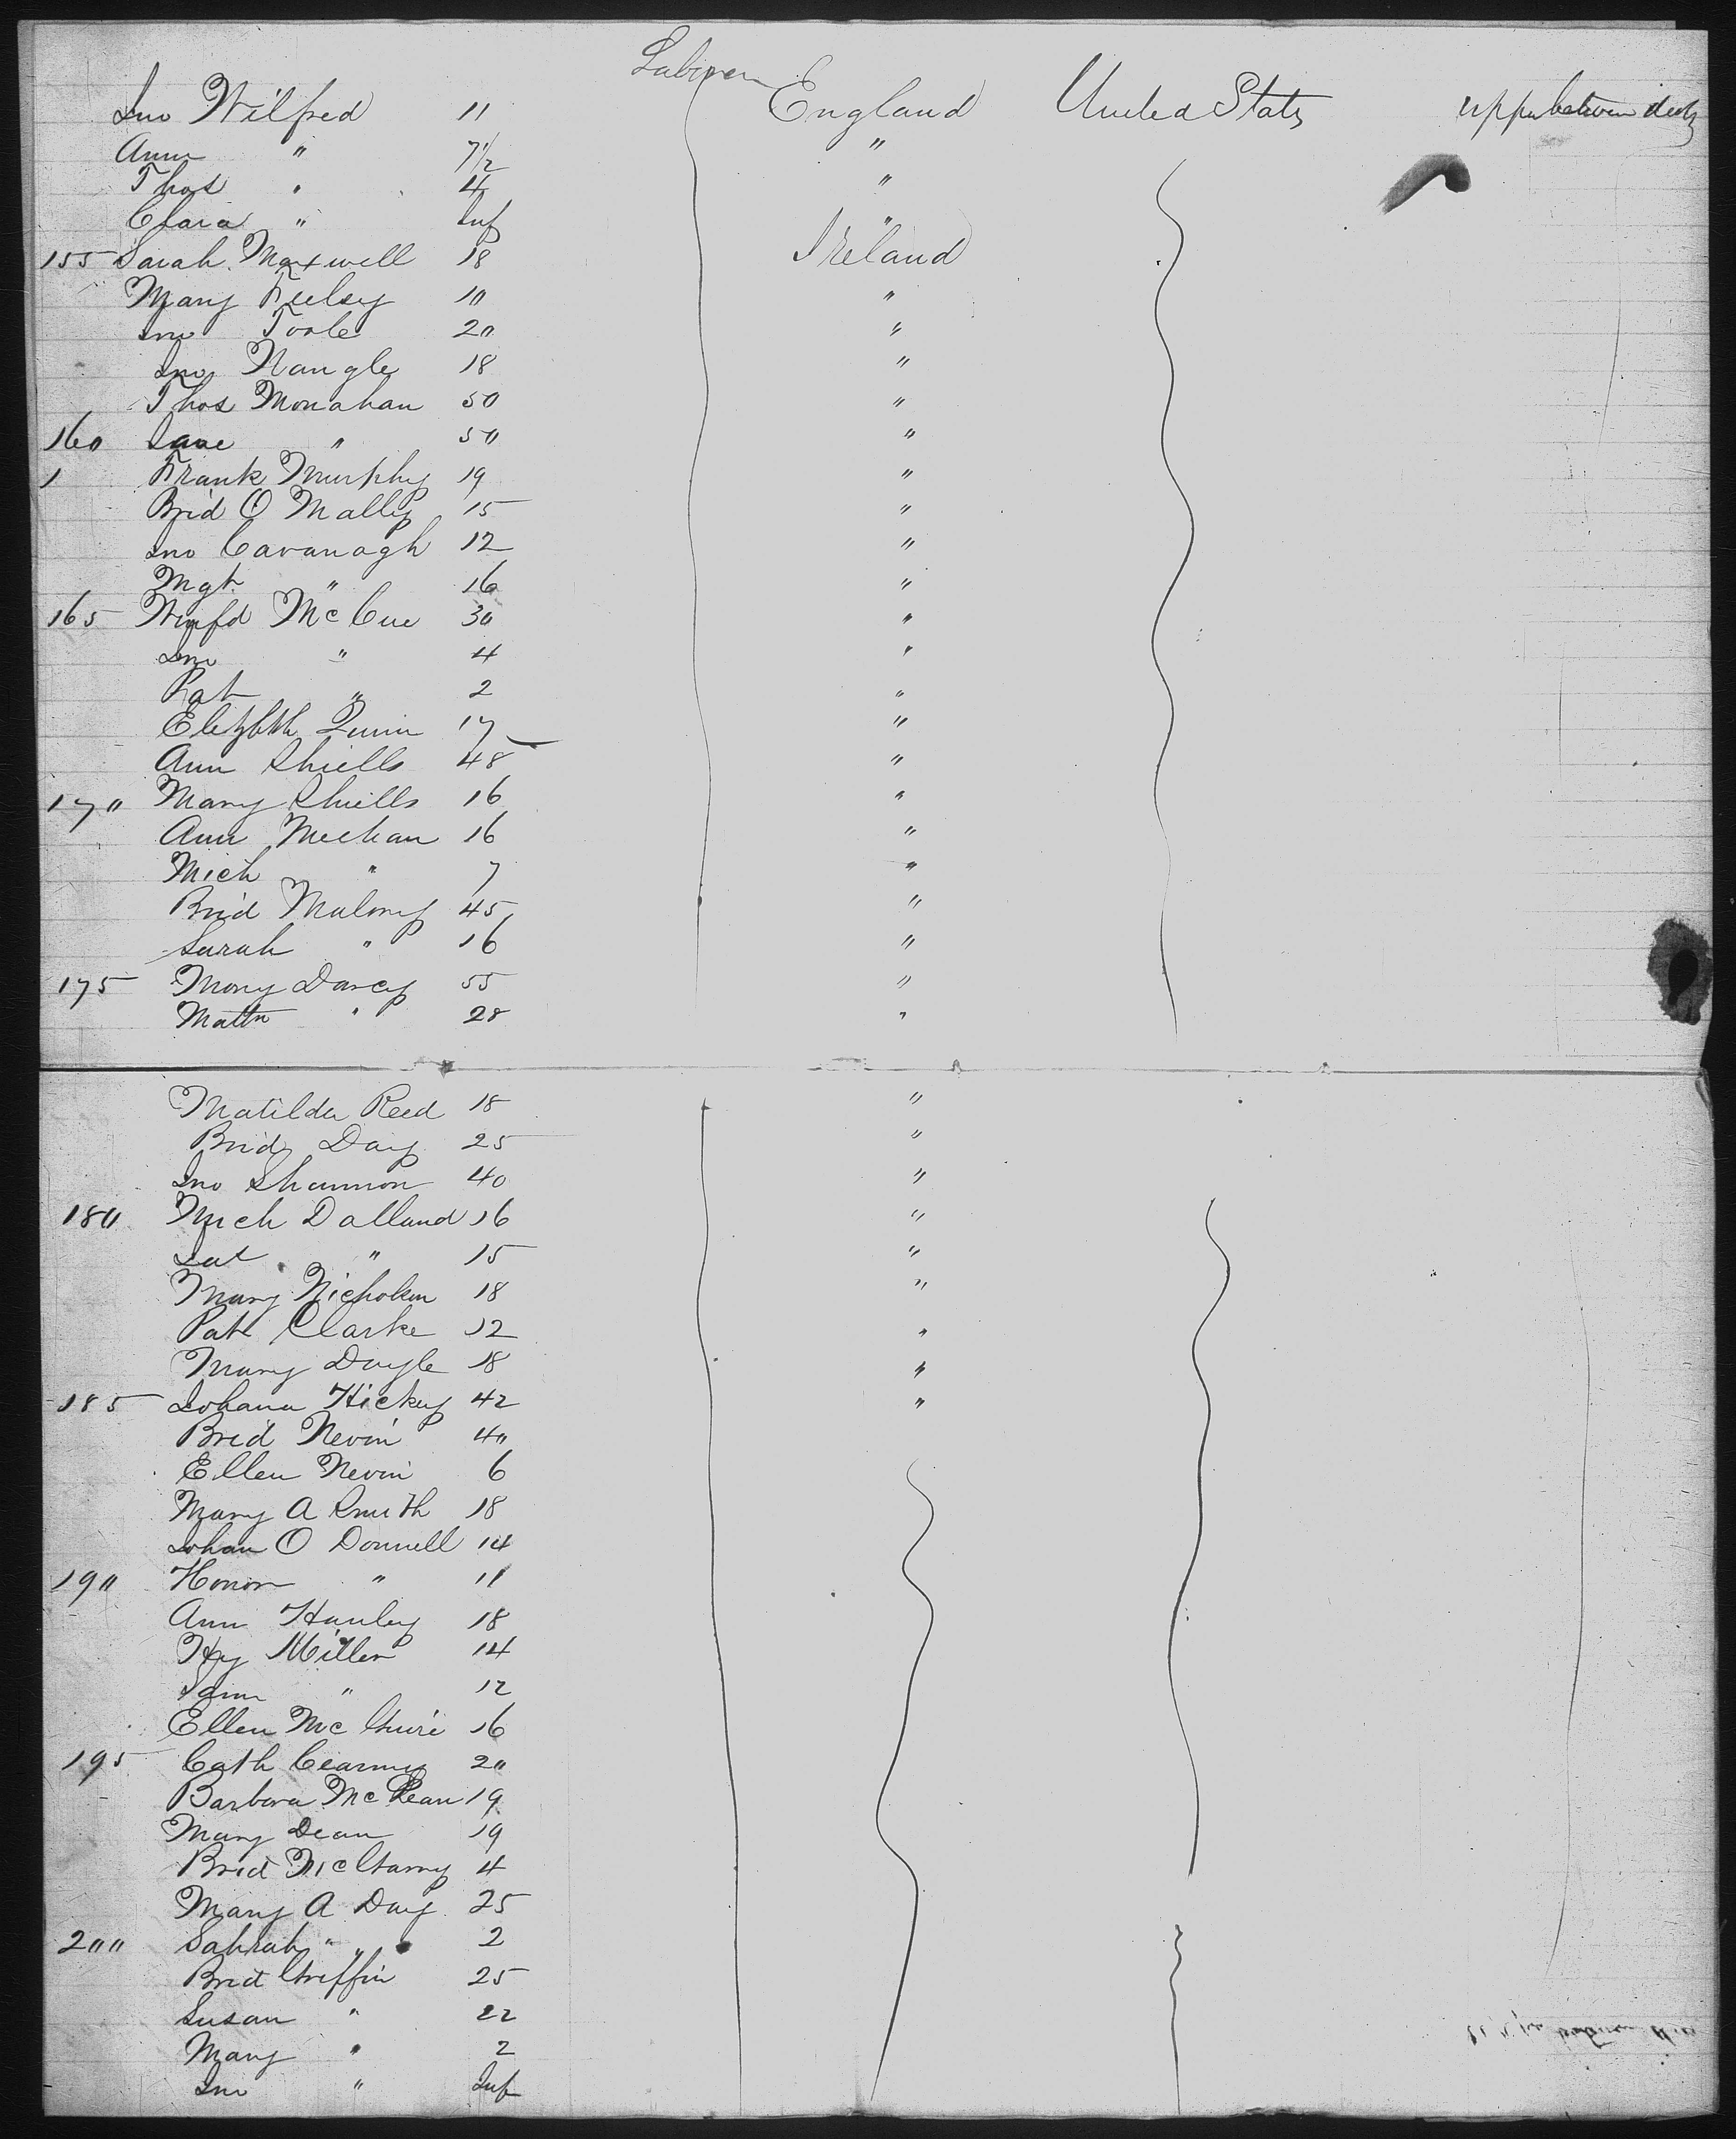 Laborer
Jno Wilfred 11 England United States upper between decks
Ann " 7 1/2 "
Thos " 4 "
Clara " Inf "
155 Sarah Maxwell 18 Ireland
Mary Kelsey 10 "
Jno Toole 20 "
Jno Nangle 18 "
Thos Monahan 50 "
160 Jane " 50 "
1 Frank Murphy 19 "
Brid O Mally 15 "
Jno Cavanagh 12 "
Mgt " 16 "
165 Winfd McCue 30 "
Jno " 4 "
Pat " 2 "
Elizbth Quinn 17 "
Ann Shiells 48 "
170 Mary Shiells 16 "
Ann Meehan 16 "
Mich " 7 "
Brid Malony 45 "
Sarah " 16 "
175 Mary Darcy 55 "
Mattw " 28 "
Matilda Reed 18 "
Brid Day 25 "
Jno Shannon 40 "
180 Mich Dalland 16 "
" 15 "
Mary Nicholson 18 "
Pat Clarke 12 "
Mary Doyle 18 "
185 Johana Hickey 42 "
Brid Nevin 40
Ellen Nevin 6
Mary A Smith 18
Johan O Donnell 14
190 Honor " 11
Ann Hanley 18
Hy Miller 14
Sam " 12
Ellen McGuire 16
195 Cath Cearney 20
Barbara Mc 19
Mary Dean 19
Brid McGarry 4
Mary A Day 25
200 Sahrah " 2
Brid Griffin 25
Susan " 22
Mary " 2
Jno " Inf